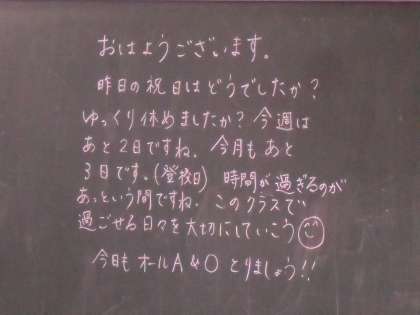 おはようございます。
昨日の祝日はどうでしたか?
ゆっくり休めましたか?今週は
あと2日ですね。今月もあと
3日です。(登校日) 時間が過ぎるのが
あっという間ですね。このクラスで
過ごせる日々を大切にしていこう
今日もオールA&O とりましょう!!